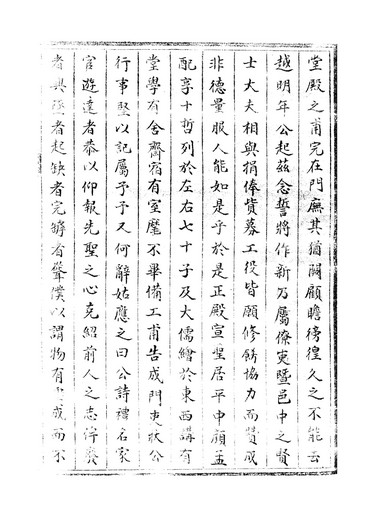 堂殿之甫完在門廡其猶闕顧瞻徬徨久之不能云
越明年公起茲念誓將作新乃屬僚吏暨邑中之賢
士大夫相與捐俸貲募工役皆願修餝協力而贊成
非德量服人能如是乎於是正殿宣聖居平中顏孟
配享十哲列於左右七十子及大儒繪於東西講有
堂學有舍齋宿有室靡不畢備工甫告成門吏狀公
行事堅以記屬予予又何辭姑應之曰公詩禮名家
官遊達者恭以仰報先聖之心克紹前人之志俾廢
者興墜者起缺者完獘者聲僕以謂物有成而不